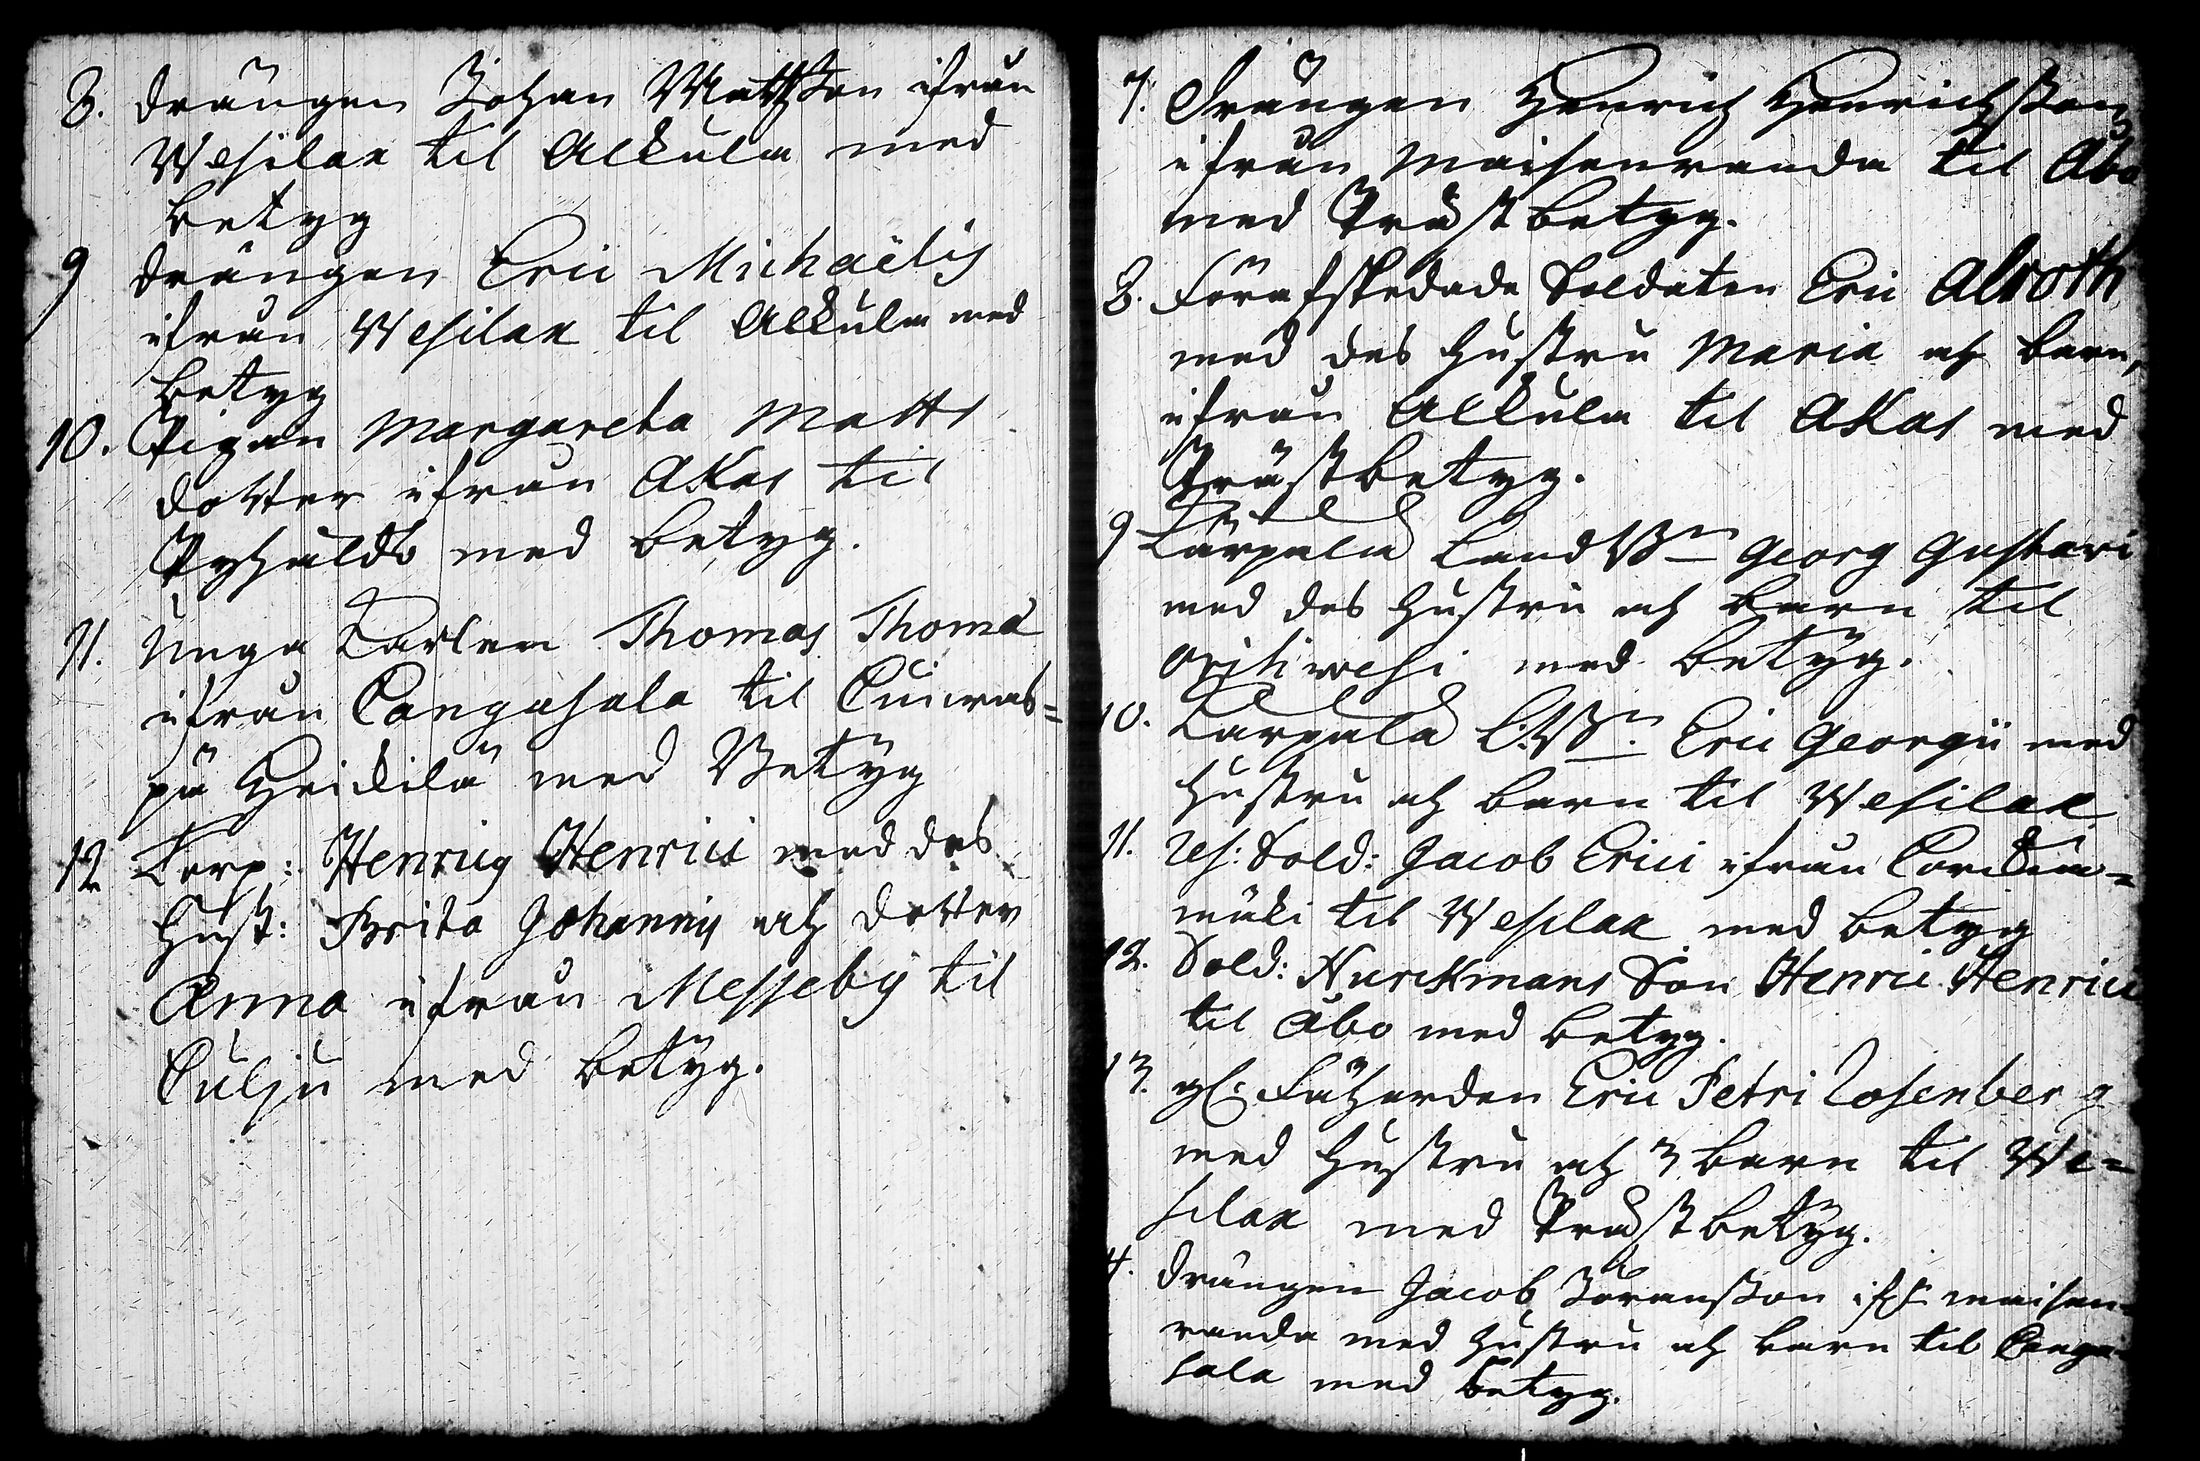 8. drängen Johan Mattsson ifrån
Wesilax til Alkula med
betyg
9 drängen Eric Michaëlis
ifrån Wesilax til Alkula med
betyg
10. Pigan Margareta Matts
dotter ifrån Akas til
Pyhäldö med betyg.
11. Unga Karlen Thomas Thomæ
ifrån Cangasala til
på Heickilä med Betyg
12 Corp: Henricg Henrici med des
Hust: Brita Johannis och dotter
Anna ifrån Messeby til
Culju med betyg.
7. Drängen Henrich Henrichsson
ifrån Maisenranda til Åbo
med Präst betyg.
8. Förafskedade Soldaten Eric Alroth
med des hustru Maria och barn,
ifrån Alkula til Akas med
Präst betyg.
9 Landbn Georg Gustavi
med des hustru och barn til
Oriswesi med betyg.
10. LBn. Eric Georgii med
hustru och barn til Wesilax
11. Res: Sold: Jacob Erici ifrån
mäki til Wesilax med betyg
12. Sold: Nurckmans Son Henric Henrici
til Åbo med betyg.
13. gl: Fäherden Eric Petri Rosenberg
med hustru och 3 barn til We=
silax med Präst betyg.
4. drängen Jacob Göransson ifr. maisen=
randa med hustru och barn til Canga=
sala med betyg.